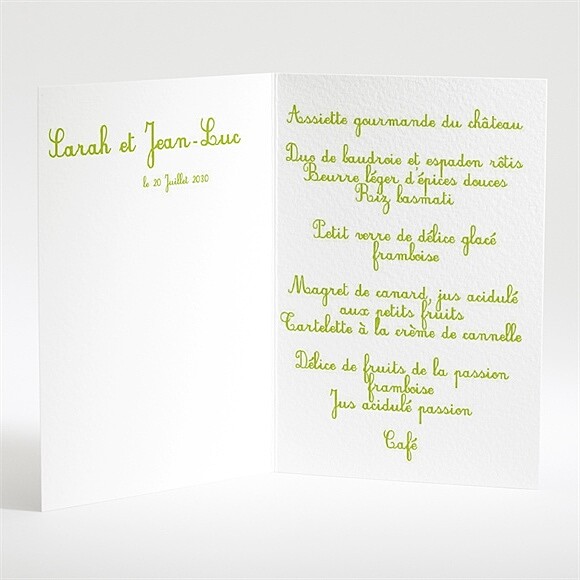 Sarah et Jean-Luc
le 20 Juillet 2030
Assiette gourmande du château
Duo de baudroie et espadon rôtis
Beurre léger d'épices douces
Riz basmati
Petit verre de délice glacé
framboise
Magret de canard, jus acidulé
aux petits fruits
Tartelette à la crème de cannelle
Délice de fruits de la passion
framboise
Jus acidulé passion
Café